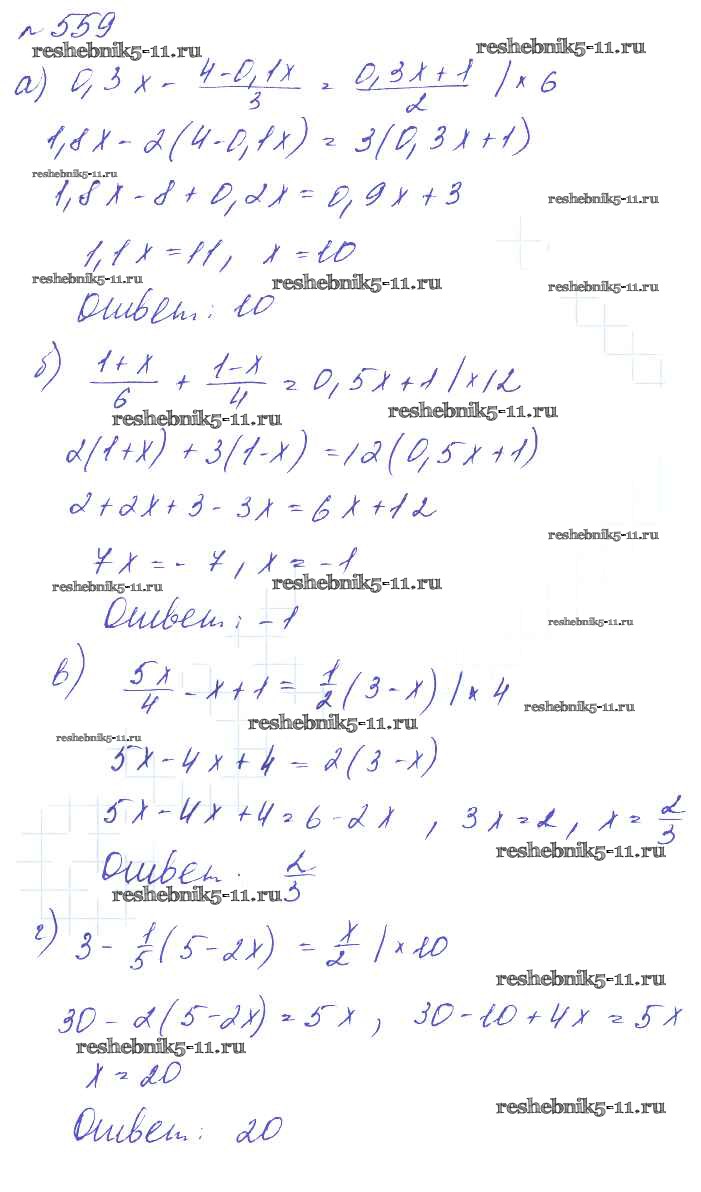 № 559
reshebnik5-11.ru reshebnik5-11.ru
а) 0,3x - (4-0,1x)/3 = (0,3x+1)/2 | × 6
1,8x - 2(4-0,1x) = 3(0,3x+1)
reshebnik5-11.ru
1,8x - 8 + 0,2x = 0,9x + 3 reshebnik5-11.ru
1,1x = 11, x = 10
reshebnik5-11.ru reshebnik5-11.ru reshebnik5-11.ru
Ответ: 10
б) (1+x)/6 + (1-x)/4 = 0,5x+1 | × 12
reshebnik5-11.ru reshebnik5-11.ru
2(1+x) + 3(1-x) = 12(0,5x+1)
2+2x+3-3x = 6x+12
reshebnik5-11.ru
7x = -7, x = -1
reshebnik5-11.ru reshebnik5-11.ru
Ответ: -1 reshebnik5-11.ru
в) 5x/4 - x+1 = 1/2 (3-x) | × 4
reshebnik5-11.ru reshebnik5-11.ru
reshebnik5-11.ru
5x-4x+4 = 2(3-x)
5x-4x+4 = 6-2x, 3x=2, x = 2/3
reshebnik5-11.ru
Ответ. 2/3
reshebnik5-11.ru
г) 3 - 1/5 (5-2x) = x/2 | × 10
reshebnik5-11.ru
30 - 2(5-2x) = 5x, 30-10+4x = 5x
reshebnik5-11.ru
x = 20
reshebnik5-11.ru
Ответ: 20